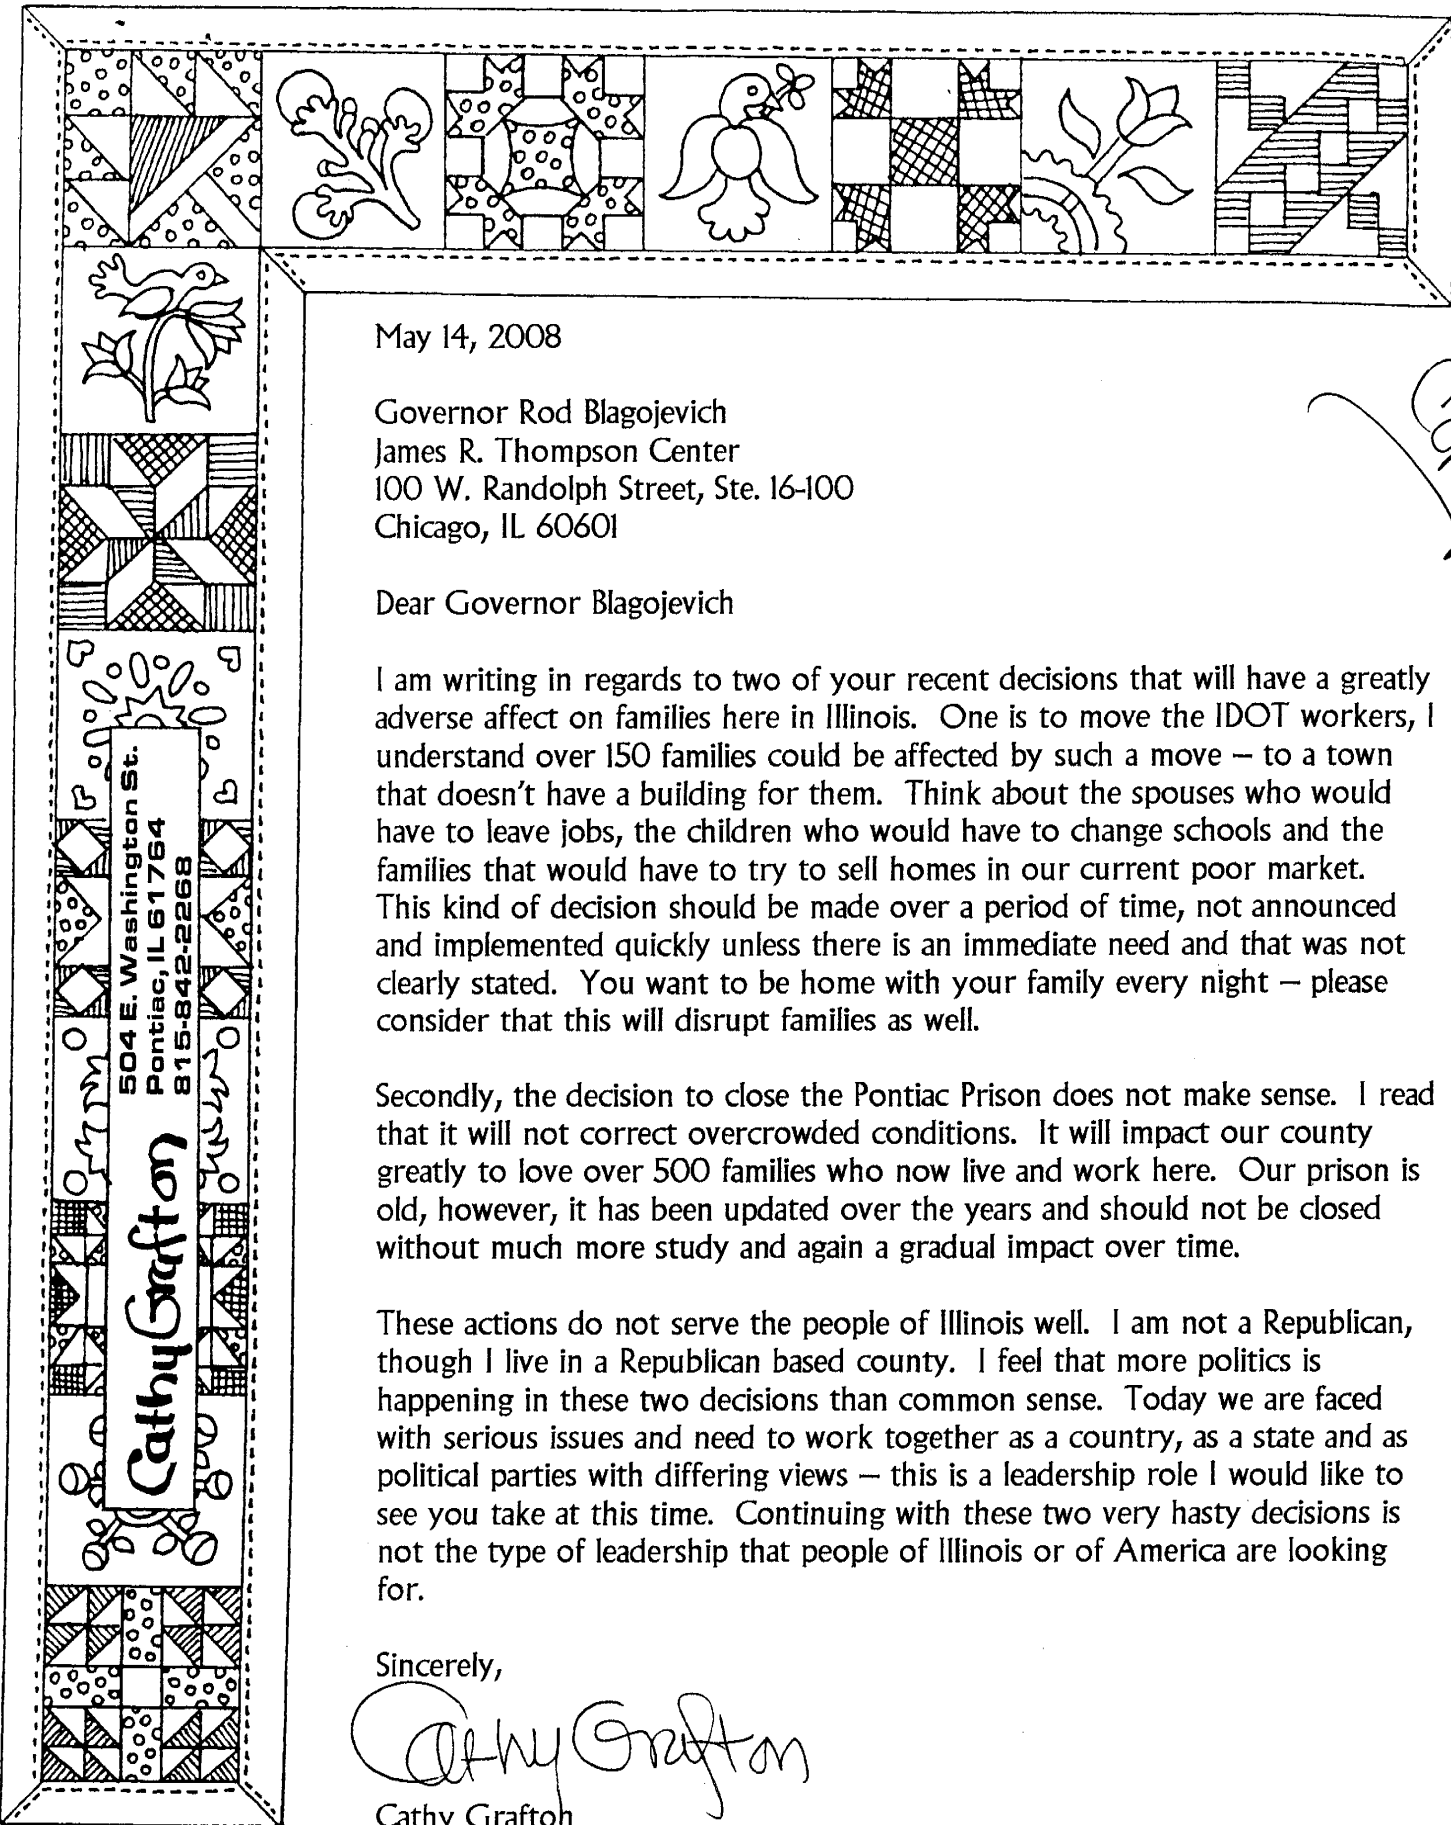 May 14, 2008
Governor Rod Blagojevich
James R. Thompson Center
100 W. Randolph Street, Ste. 16-100
Chicago, IL 60601
Dear Governor Blagojevich
I am writing in regards to two of your recent decisions that will have a greatly
adverse affect on families here in Illinois. One is to move the IDOT workers, I
understand over 150 families could be affected by such a move – to a town
that doesn't have a building for them. Think about the spouses who would
have to leave jobs, the children who would have to change schools and the
families that would have to try to sell homes in our current poor market.
This kind of decision should be made over a period of time, not announced
and implemented quickly unless there is an immediate need and that was not
clearly stated. You want to be home with your family every night – please
consider that this will disrupt families as well.
Secondly, the decision to close the Pontiac Prison does not make sense. I read
that it will not correct overcrowded conditions. It will impact our county
greatly to love over 500 families who now live and work here. Our prison is
old, however, it has been updated over the years and should not be closed
without much more study and again a gradual impact over time.
These actions do not serve the people of Illinois well. I am not a Republican,
though I live in a Republican based county. I feel that more politics is
happening in these two decisions than common sense. Today we are faced
with serious issues and need to work together as a country, as a state and as
political parties with differing views – this is a leadership role I would like to
see you take at this time. Continuing with these two very hasty decisions is
not the type of leadership that people of Illinois or of America are looking
for.
Sincerely,
Cathy Grafton
Cathy Grafton
Cathy Grafton
504 E. Washington St.
Pontiac, IL 61764
815-842-2268